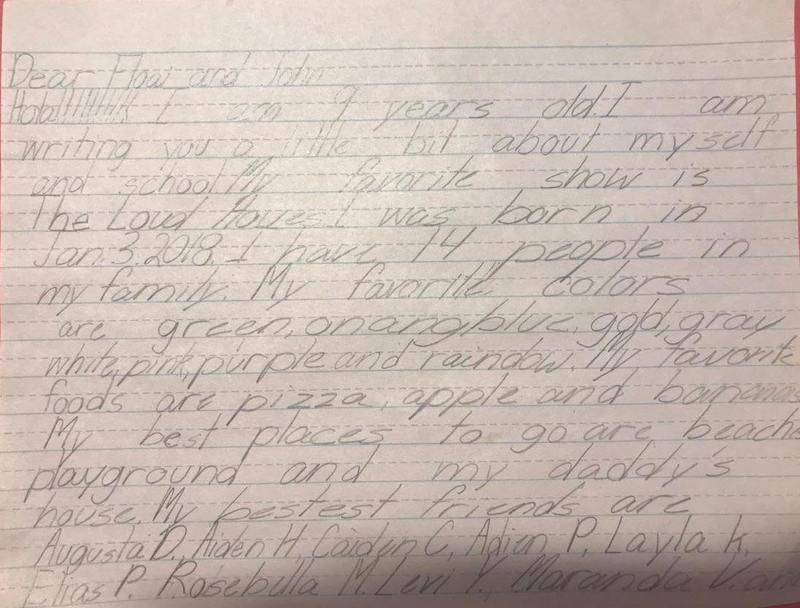 Dear Flow and John
Hola!!!!!!!!! I am 9 years old. I am
writing you a little bit about myself
and school My favorite show is
The Loud House I was born in
Jan. 3, 2018. I have 14 people in
my family. My favorite colors
are green, onang blue, gold, gray
white, pink, purple and raindow. My favorite
foods are pizza, apple and bananas
My best places to go are beache
playground and my daddy's
house. My bestest friends are
Augusta D., Aiden H, Caiden C, Adien P, Layla K,
Elias P. Rosebella M. Levi Y., Maranda V. and